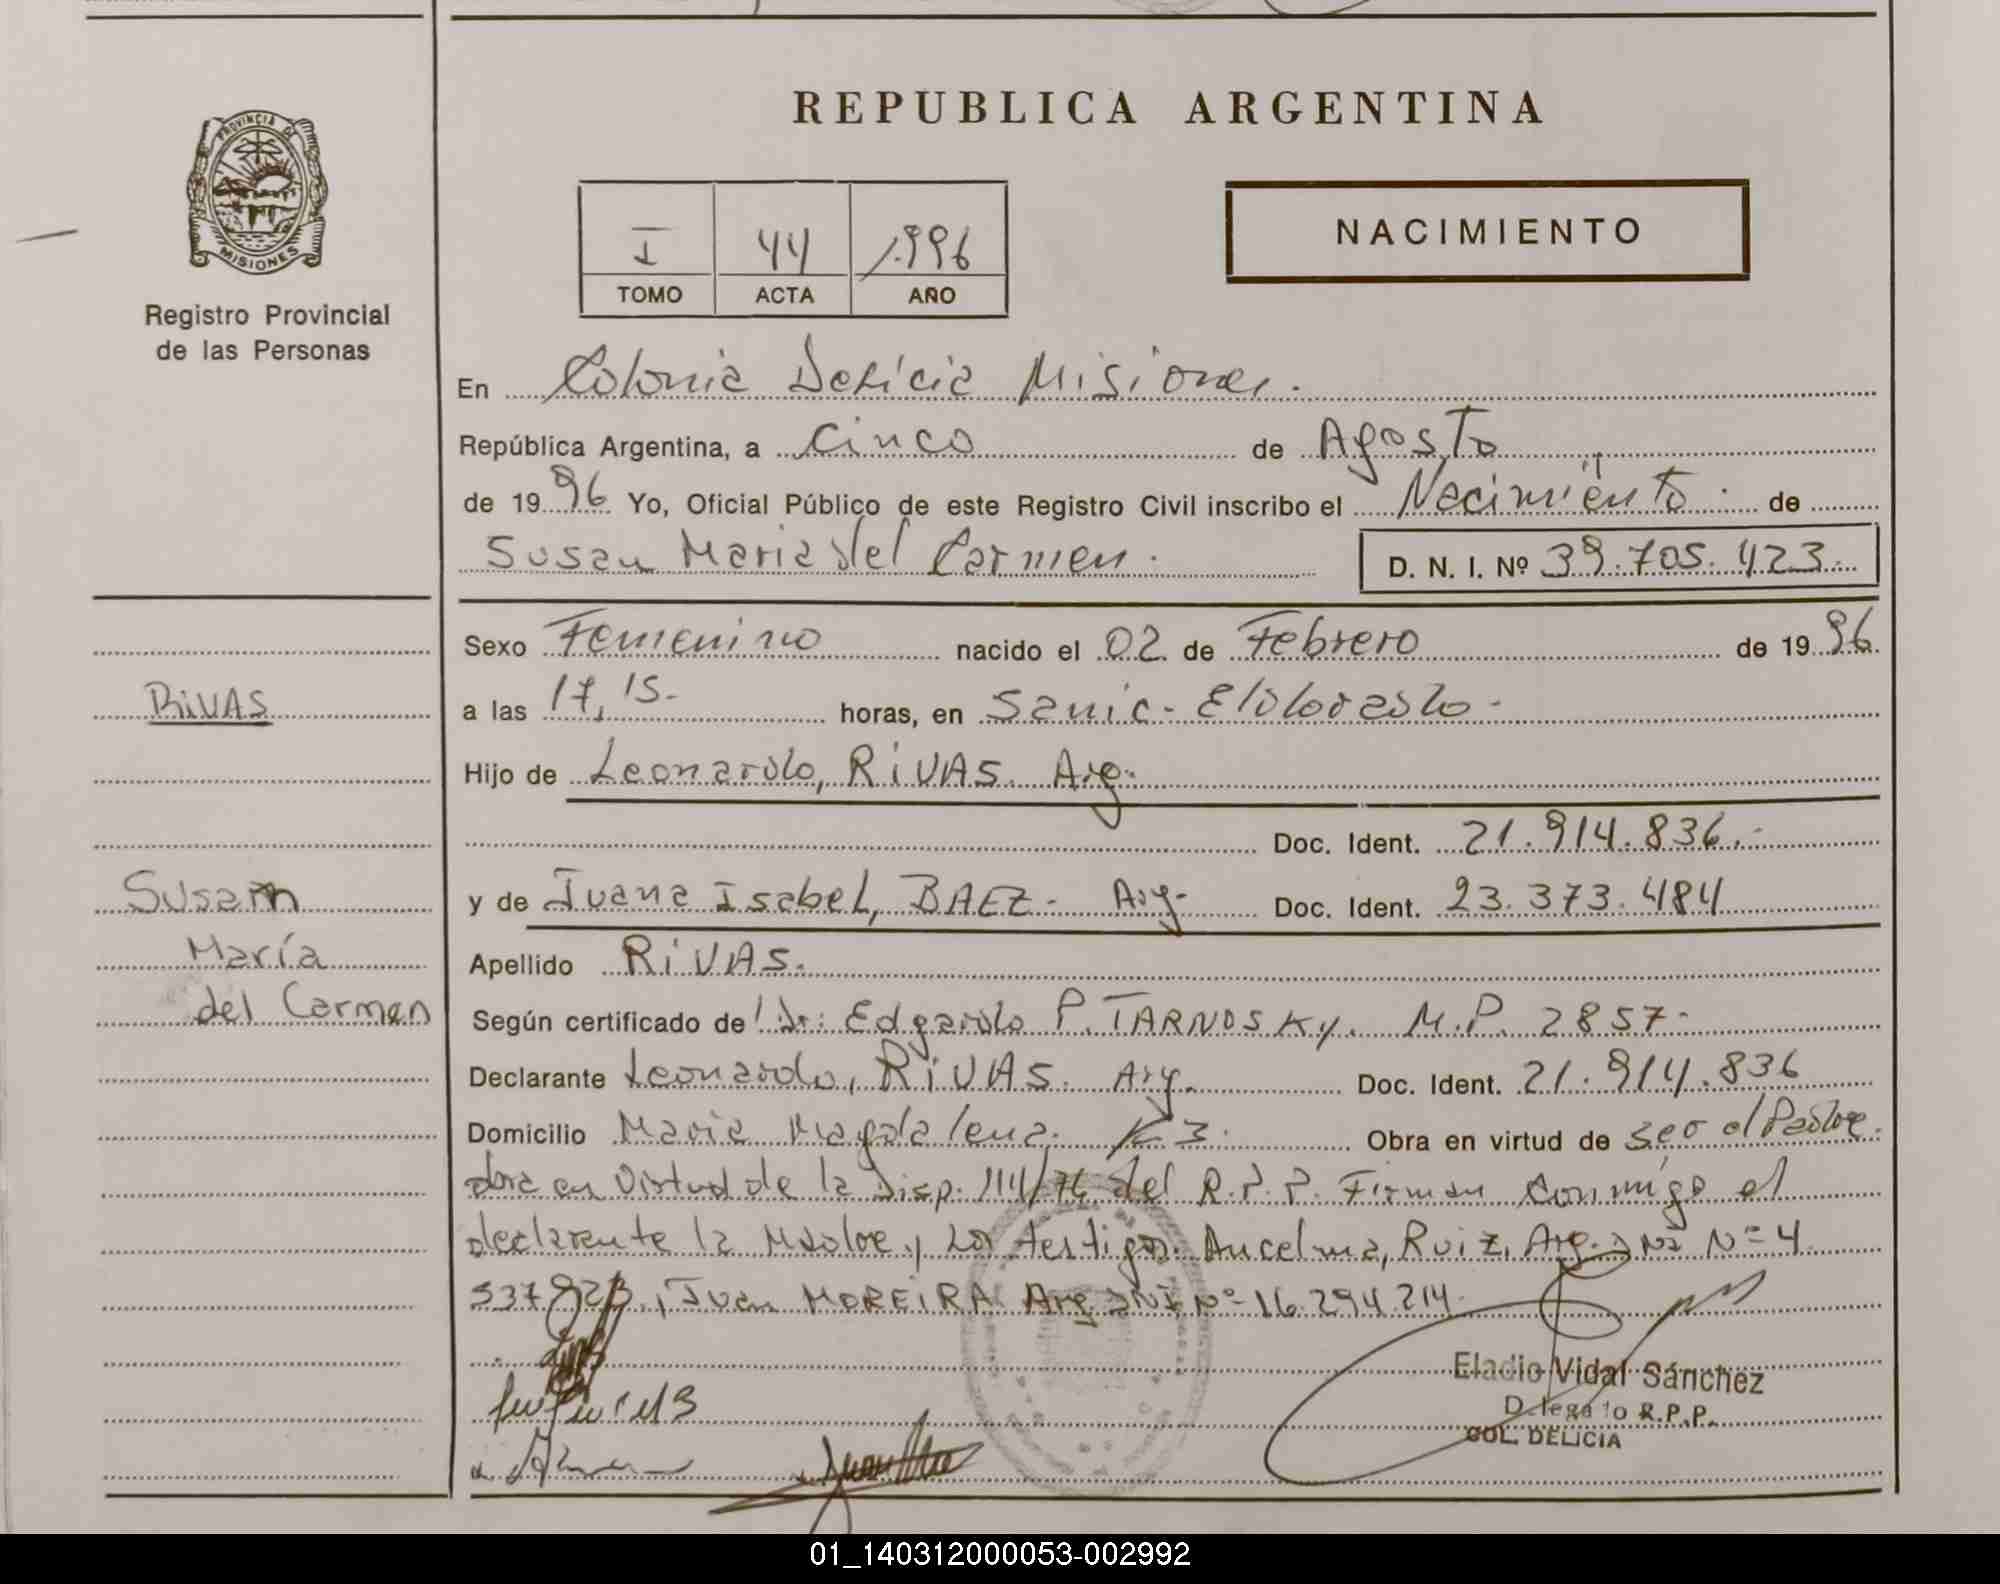 PROVINCIA DE
MISIONES
Registro Provincial
de las Personas
RIVAS
Susam
María
del Carmen
REPUBLICA ARGENTINA
I 44 1.996
TOMO ACTA AÑO
NACIMIENTO
En Colonia Delicia Misiones.
República Argentina, a Cinco de Agosto
de 19 96 Yo, Oficial Público de este Registro Civil inscribo el Nacimiento de
Susan Maria del Carmen. D. N. I. Nº 39.705.423.
Sexo Femenino nacido el 02 de Febrero de 19 96.
a las 17,15.- horas, en Sanic- Eldorado-
Hijo de Leonardo, RIVAS. Arg.
Doc. Ident. 21.914.836.-
y de Juana Isabel, BAEZ- Arg- Doc. Ident. 23.373.484
Apellido RIVAS.
Según certificado de Dr: Edgardo P. TARNOSKy. M.P. 2857-
Declarante Leonardo, RIVAS. Arg. Doc. Ident. 21.914.836
Domicilio Maria Magdalena. K 3. Obra en virtud de ser el Padre.
obra en Virtud de la Disp. 114/76 del R.P.P. Firman conmigo el
declarante la Madre, y Los testigos. Ancelma, Ruiz, Arg. DNI Nº 4
, Juan MOREIRA Arg DNI Nº 16.294.214-
Eladio Vidal Sánchez
Delegado R.P.P.
COL. DELICIA
01_140312000053-002992